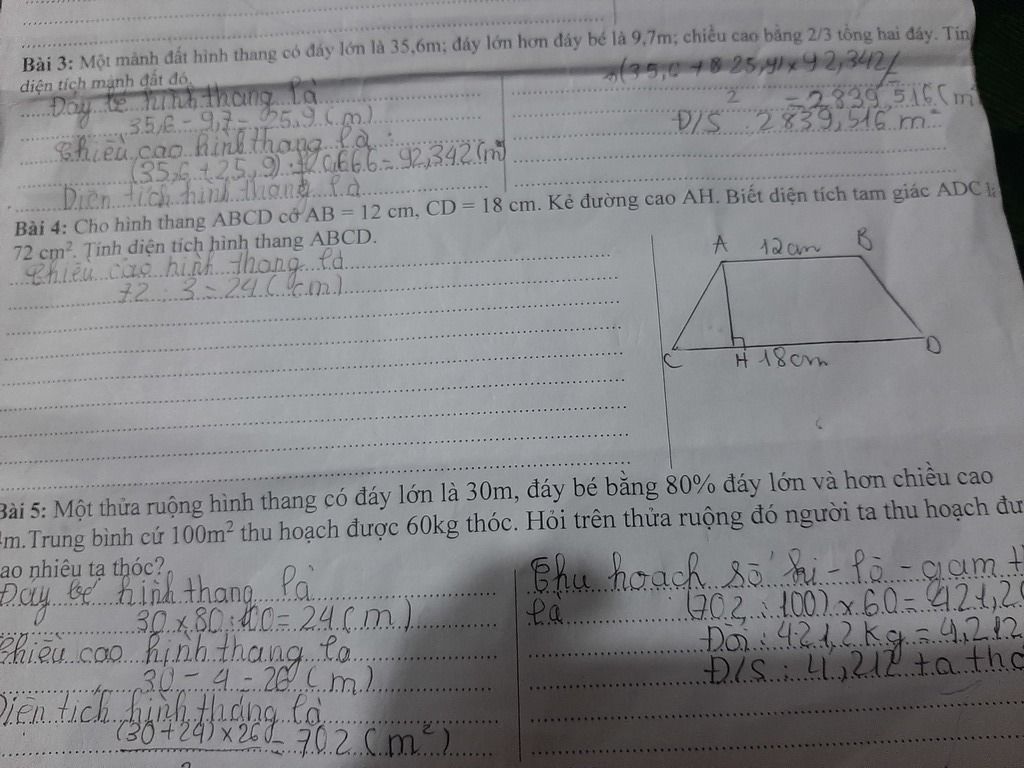 Bài 3: Một mảnh đất hình thang có đáy lớn là 35,6m; đáy lớn hơn đáy bé là 9,7m; chiều cao bằng 2/3 tổng hai đáy. Tín
diện tích mảnh đất đó.
Đáy bé hình thang là
35,6 - 9,7 = 25,9 (m)
Chiều cao hình thang là
(35,6 + 25,9) 0,666 = 92,342 (m)
Diện tích hình thang là
= 2839,516 (m
Đ/S : 2839,516 m²
Bài 4: Cho hình thang ABCD có AB = 12 cm, CD = 18 cm. Kẻ đường cao AH. Biết diện tích tam giác ADC là
72 cm². Tính diện tích hình thang ABCD.
Chiều cao hình thang là
72 : 3 = 24 (cm)
A 12cm B
C H 18cm D
Bài 5: Một thửa ruộng hình thang có đáy lớn là 30m, đáy bé bằng 80% đáy lớn và hơn chiều cao
m.Trung bình cứ 100m² thu hoạch được 60kg thóc. Hỏi trên thửa ruộng đó người ta thu hoạch đư
ao nhiêu tạ thóc?
Đáy bé hình thang là
30 x 80 : 100 = 24 (m)
Chiều cao hình thang là
30 - 4 = 26 (m)
Diện tích hình thang là
(30 + 24) x 26 = 702 (m²)
2
Thu hoạch số ki-lô-gam t
là (702 : 100) x 60 = 421,2
Đổi : 421,2 kg = 4,212
Đ/S : 4,212 tạ thó